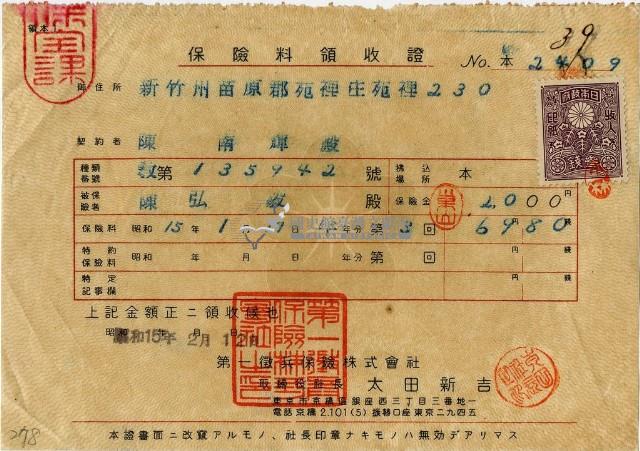 領本1
保險料領收證
39
No. 本 2409
御住所 新竹州苗栗郡苑裡庄苑裡230
契約者 陳南輝殿
種類番號 第135942號 拂込場所 本
被保險者 陳弘 殿 保險金 2,000円
保險料 昭和15年1月 年分第3回 6980
特約保險料 昭和 年 月 日 年分第 回 円 錢
特定記事欄 円 錢
上記金額正ニ領收候也
昭和15年2月12日
第一徵兵保險株式會社
取締役社長 太田新吉
東京市京橋區銀座西三丁目三番地一
電話京橋2.101(5) 振替口座東京二九四五
本證書面ニ改竄アルモノ、社長印章ナキモノハ無効デアリマス
大日本帝國政府
收入印紙
278